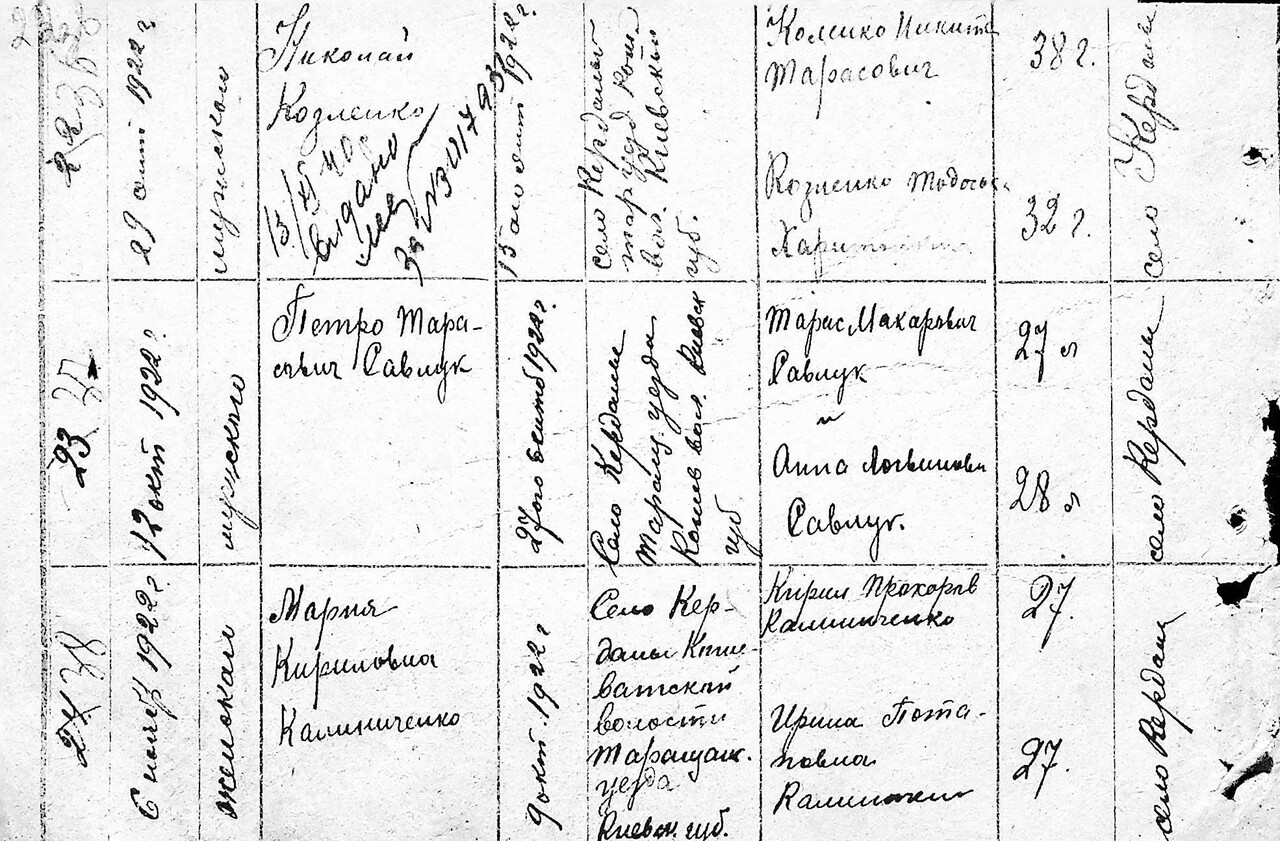 22
29 окт 1922 г
мужской
Николай
Козленко
13/
40
Видано
за №
15 ого окт 1922 г.
село Керданы
Тар уезд Кош
вол. Киевской
губ.
Никита
Тарасович
Козленко
38 г.
32 г.
село Керданы
23
12 окт 1922 г
мужского
Петро Тара-
сович Савлук
27ого сентб 1922 г
Село Керданы
Таращ. уезда
Кошев вол. Киевск
губ
Тарас Макарович
Савлук
и
Анна Логвинова
Савлук.
27 л
28 л
село Керданы
24
6 нояб 1922 г
женская
Мария
Кириловна
Калиниченко
9 окт. 1922 г
Село Кер-
даны Коше-
ватской
волости
Таращан.
уезда
Киевск. губ.
Кирил Прохоров
Калиниченко
Ирина Пота-
повна
27.
27.
село Керданы